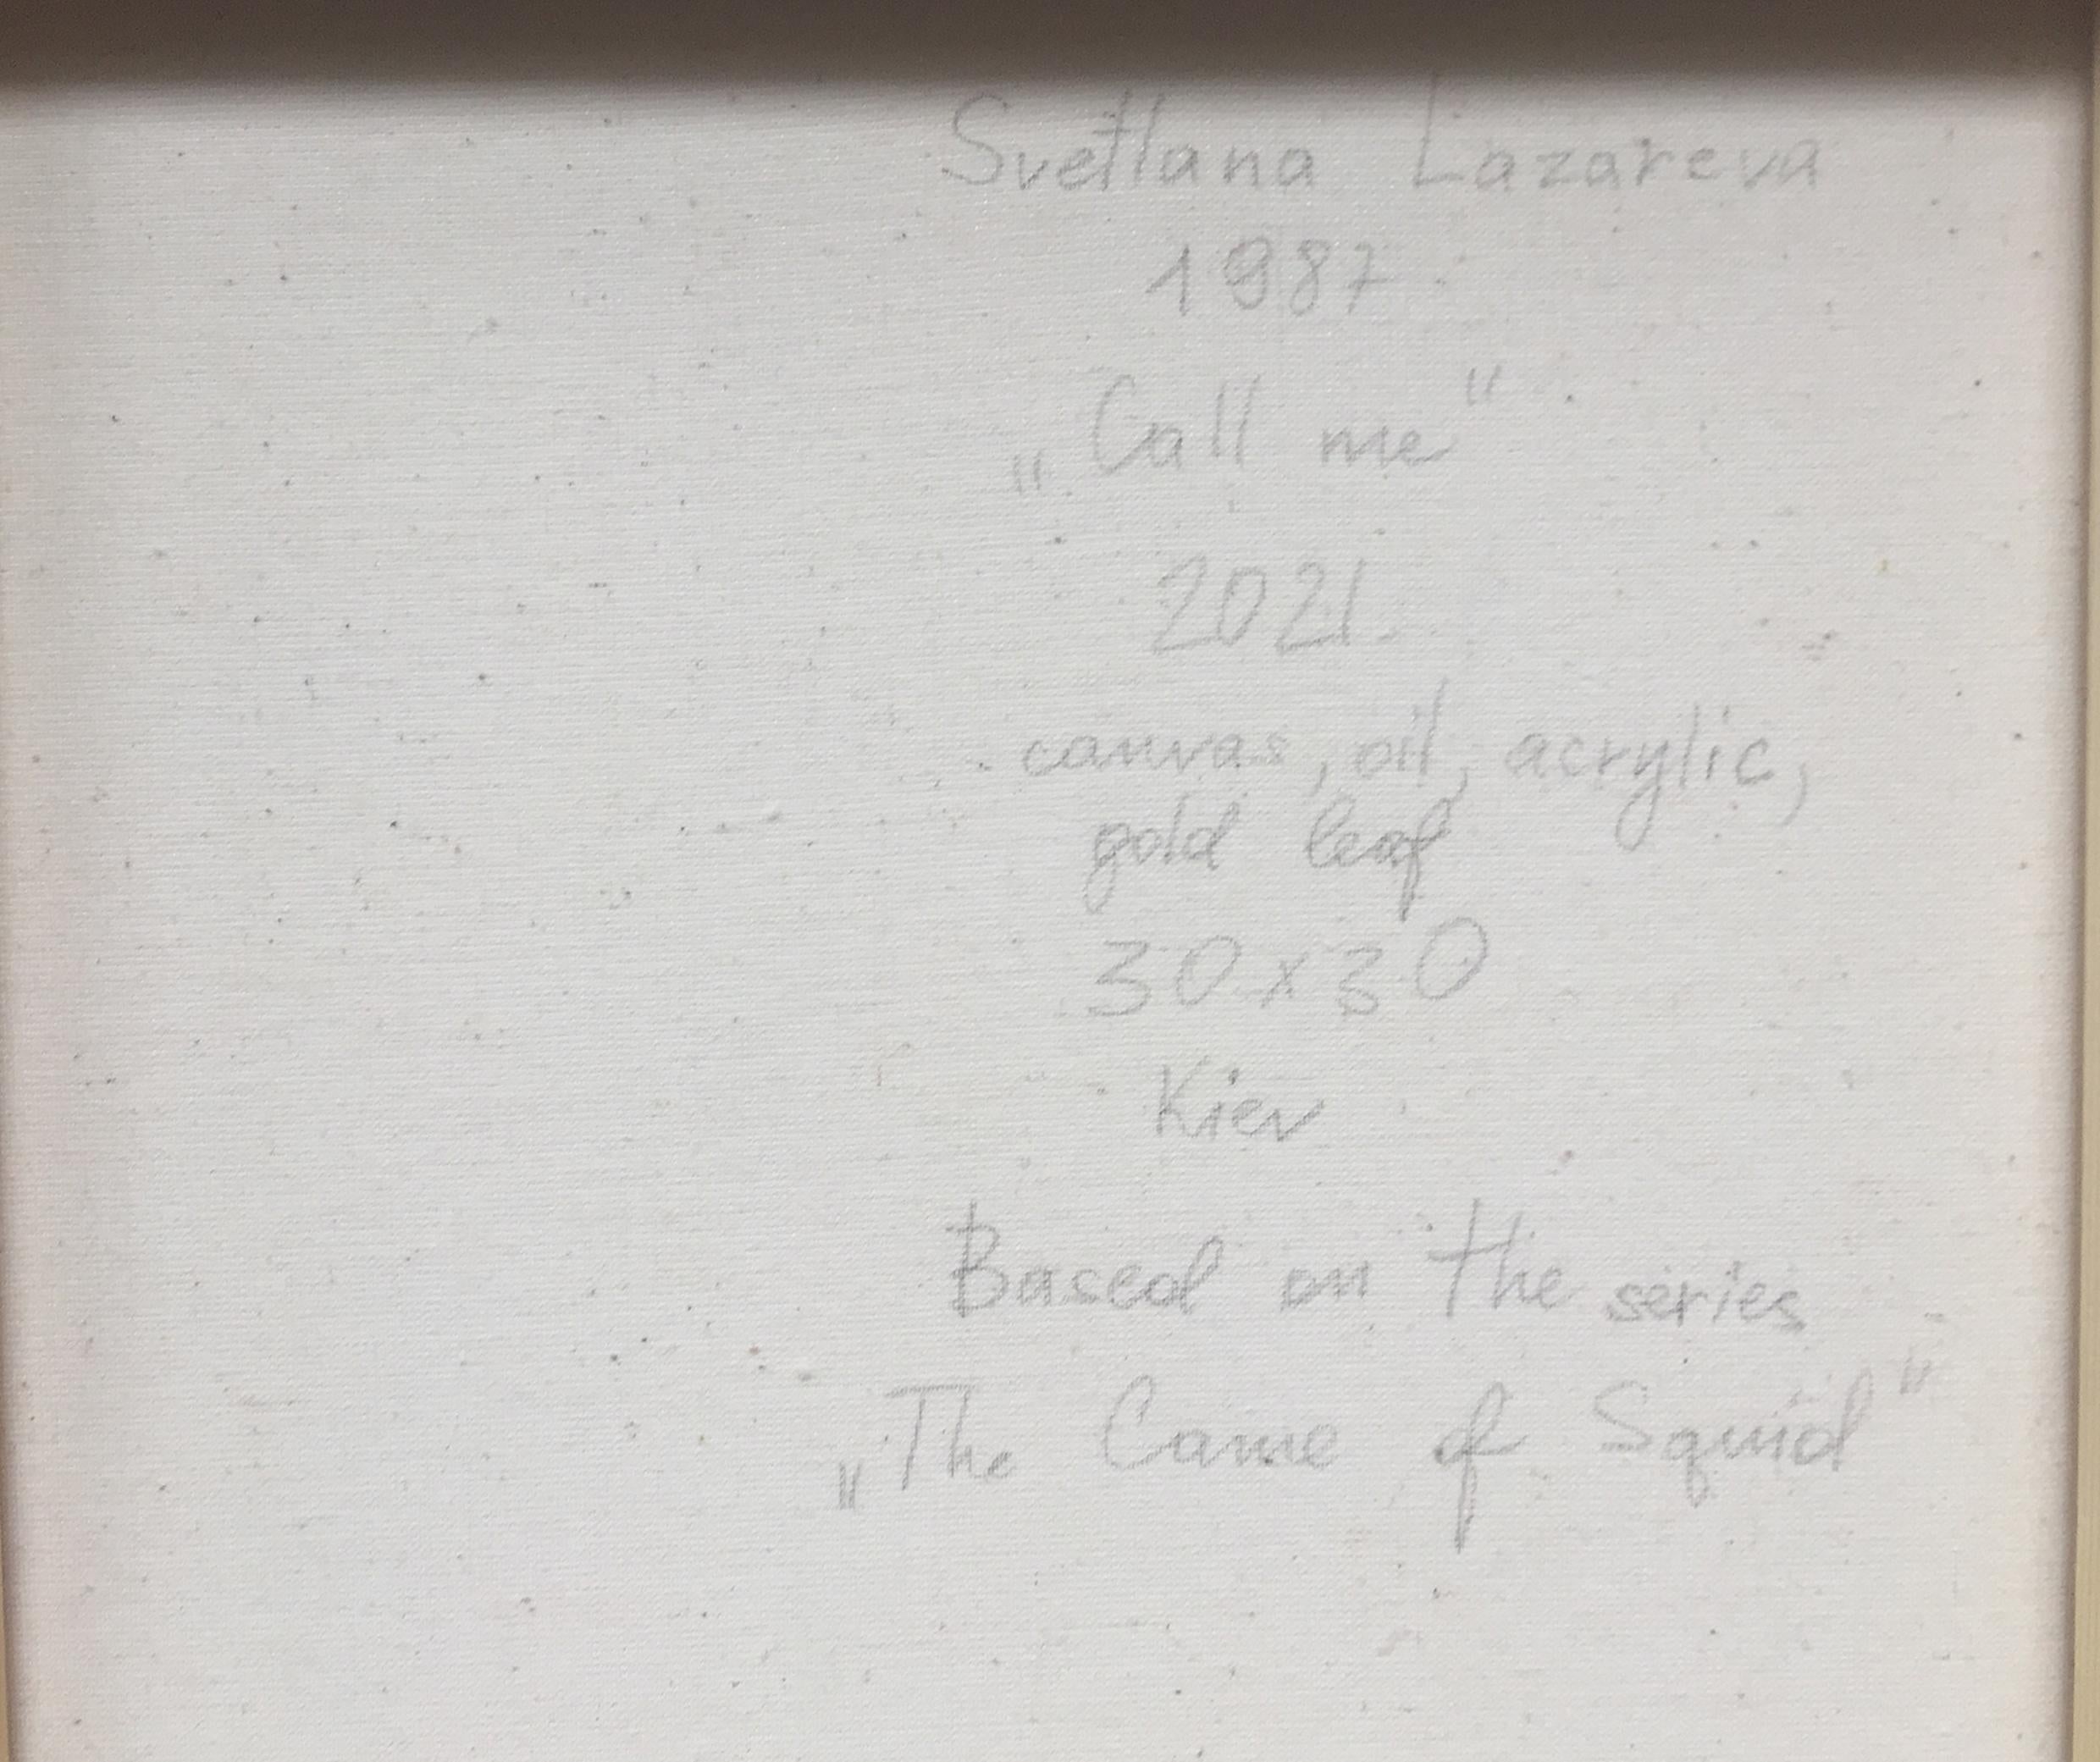 Svetlana Lazareva
1987
„Call me"
2021
canvas, oil, acrylic,
gold leaf
30x30
Kiev
Based on the series
„The Came of Squid"